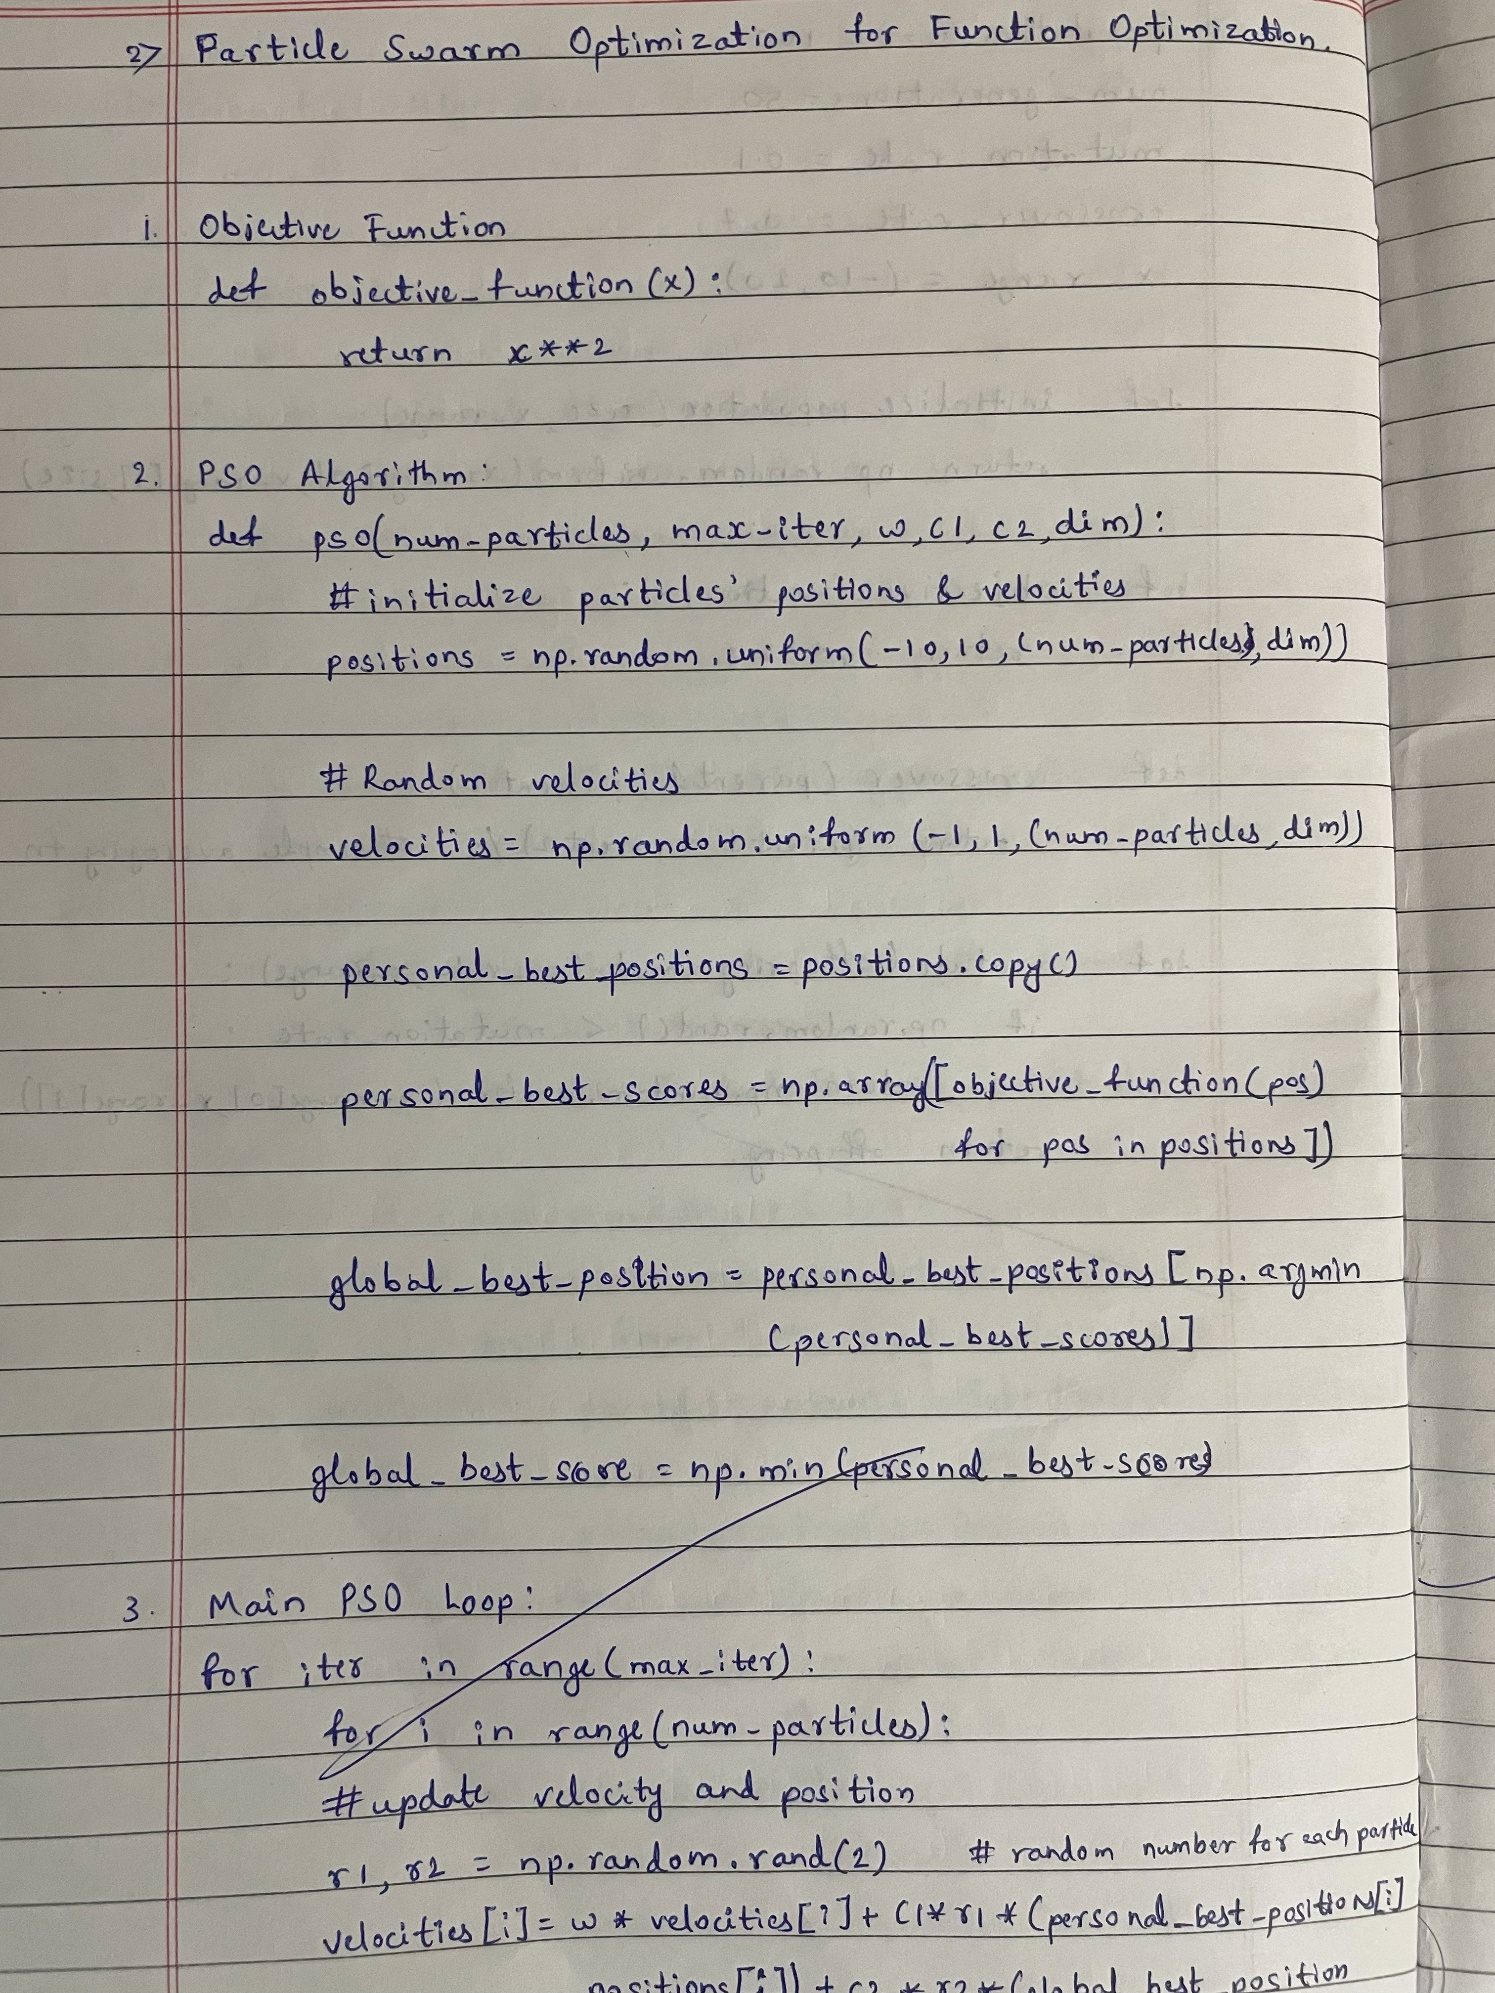 2> Particle Swarm Optimization for Function Optimization.
1. Objective Function
def objective_function (x) :
return x**2
2. PSO Algorithm :
def pso(num-particles, max-iter, w, c1, c2, dim) :
# initialize particles' positions & velocities
positions = np.random.uniform(-10, 10, (num-particles, dim))
# Random velocities
velocities = np.random.uniform (-1, 1, (num-particles, dim))
personal_best_positions = positions.copy()
personal_best_scores = np.array([objective_function(pos)
for pos in positions])
global_best_position = personal_best_positions [np.argmin
(personal_best_scores)]
global_best_score = np.min(personal_best-scores)
3. Main PSO Loop :
for iter in range (max_iter) :
for i in range (num-particles) :
# update velocity and position
r1, r2 = np.random.rand(2) # random number for each particle
velocities [i] = w * velocities [i] + c1 * r1 * (personal_best_positions[i]
positions [i]) + c2 * r2 * (global best position